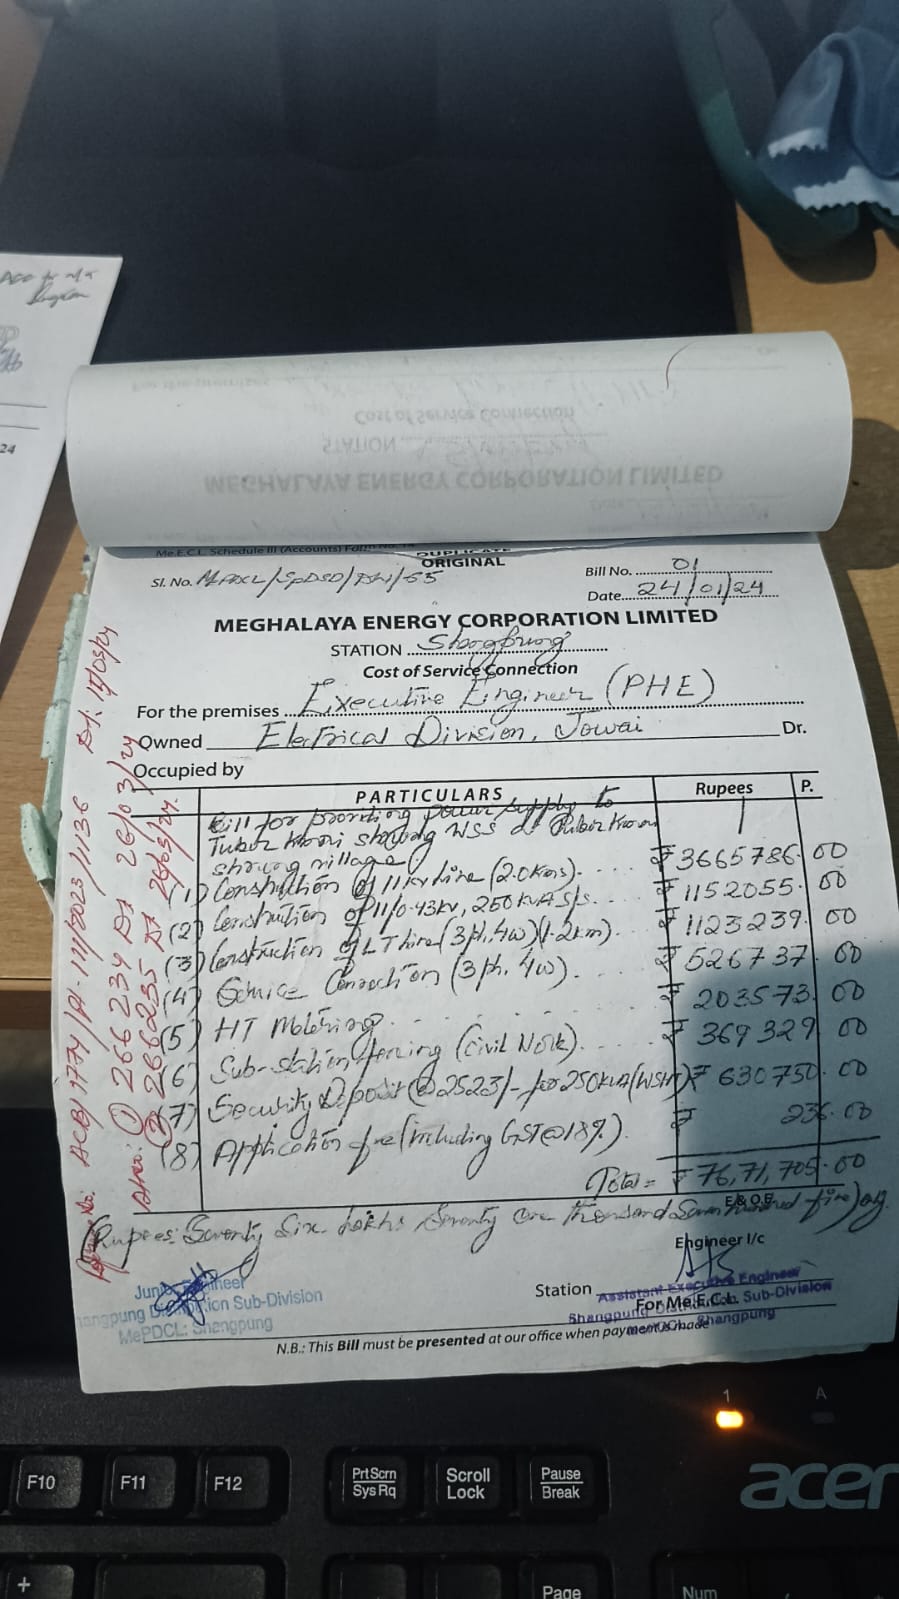 24
Me.E.C.L. Schedule III (Accounts) Form No.
DUPLICATE
ORIGINAL
Sl. No. MePDCL/SPDSD/DW/55
Bill No. 01
Date 24/01/24
MEGHALAYA ENERGY CORPORATION LIMITED
STATION Shangpung
Cost of Service Connection
For the premises Executive Engineer (PHE)
Owned Electrical Division, Jowai Dr.
Occupied by
PARTICULARS Rupees P.
Bill for providing power supply to
Tuber Kmai shnong WSS at Tuber Kmai
shnong village
(1) Construction of 11kv line (2.0kms). ₹ 3665786.00
(2) Construction of 11/0.43kv, 250kVA S/s. ₹ 1152055.00
(3) Construction of LT line (3ph, 4w) (1.2km). ₹ 1123239.00
(4) Service Connection (3ph, 4w). ₹ 526737.00
(5) HT Metering. ₹ 203573.00
(6) Sub-station fencing (Civil Work). ₹ 369329.00
(7) Security Deposit @ 2523/- for 250kVA (WSHT) ₹ 630750.00
(8) Application fee (including GST@18%). ₹ 236.00
Total = ₹ 76,71,705.00
E & O.E.
(Rupees: Seventy Six lakhs Seventy one thousand Seven hundred five) only.
Engineer I/c
Junior Engineer
Shangpung Distribution Sub-Division
MePDCL: Shangpung
Station
Assistant Executive Engineer
For Me.E.C.L.
Shangpung Distribution Sub-Division
MePDCL, Shangpung
N.B.: This Bill must be presented at our office when payment is made
ACB/1774/A1-111/2023/1136 Dt: 15/03/24
① 266234 Dt 26/03/24
② 266235 Dt 26/03/24.
1
A
acer
F10
F11
F12
PrtScrn
SysRq
Scroll
Lock
Pause
Break
+
Page
Num